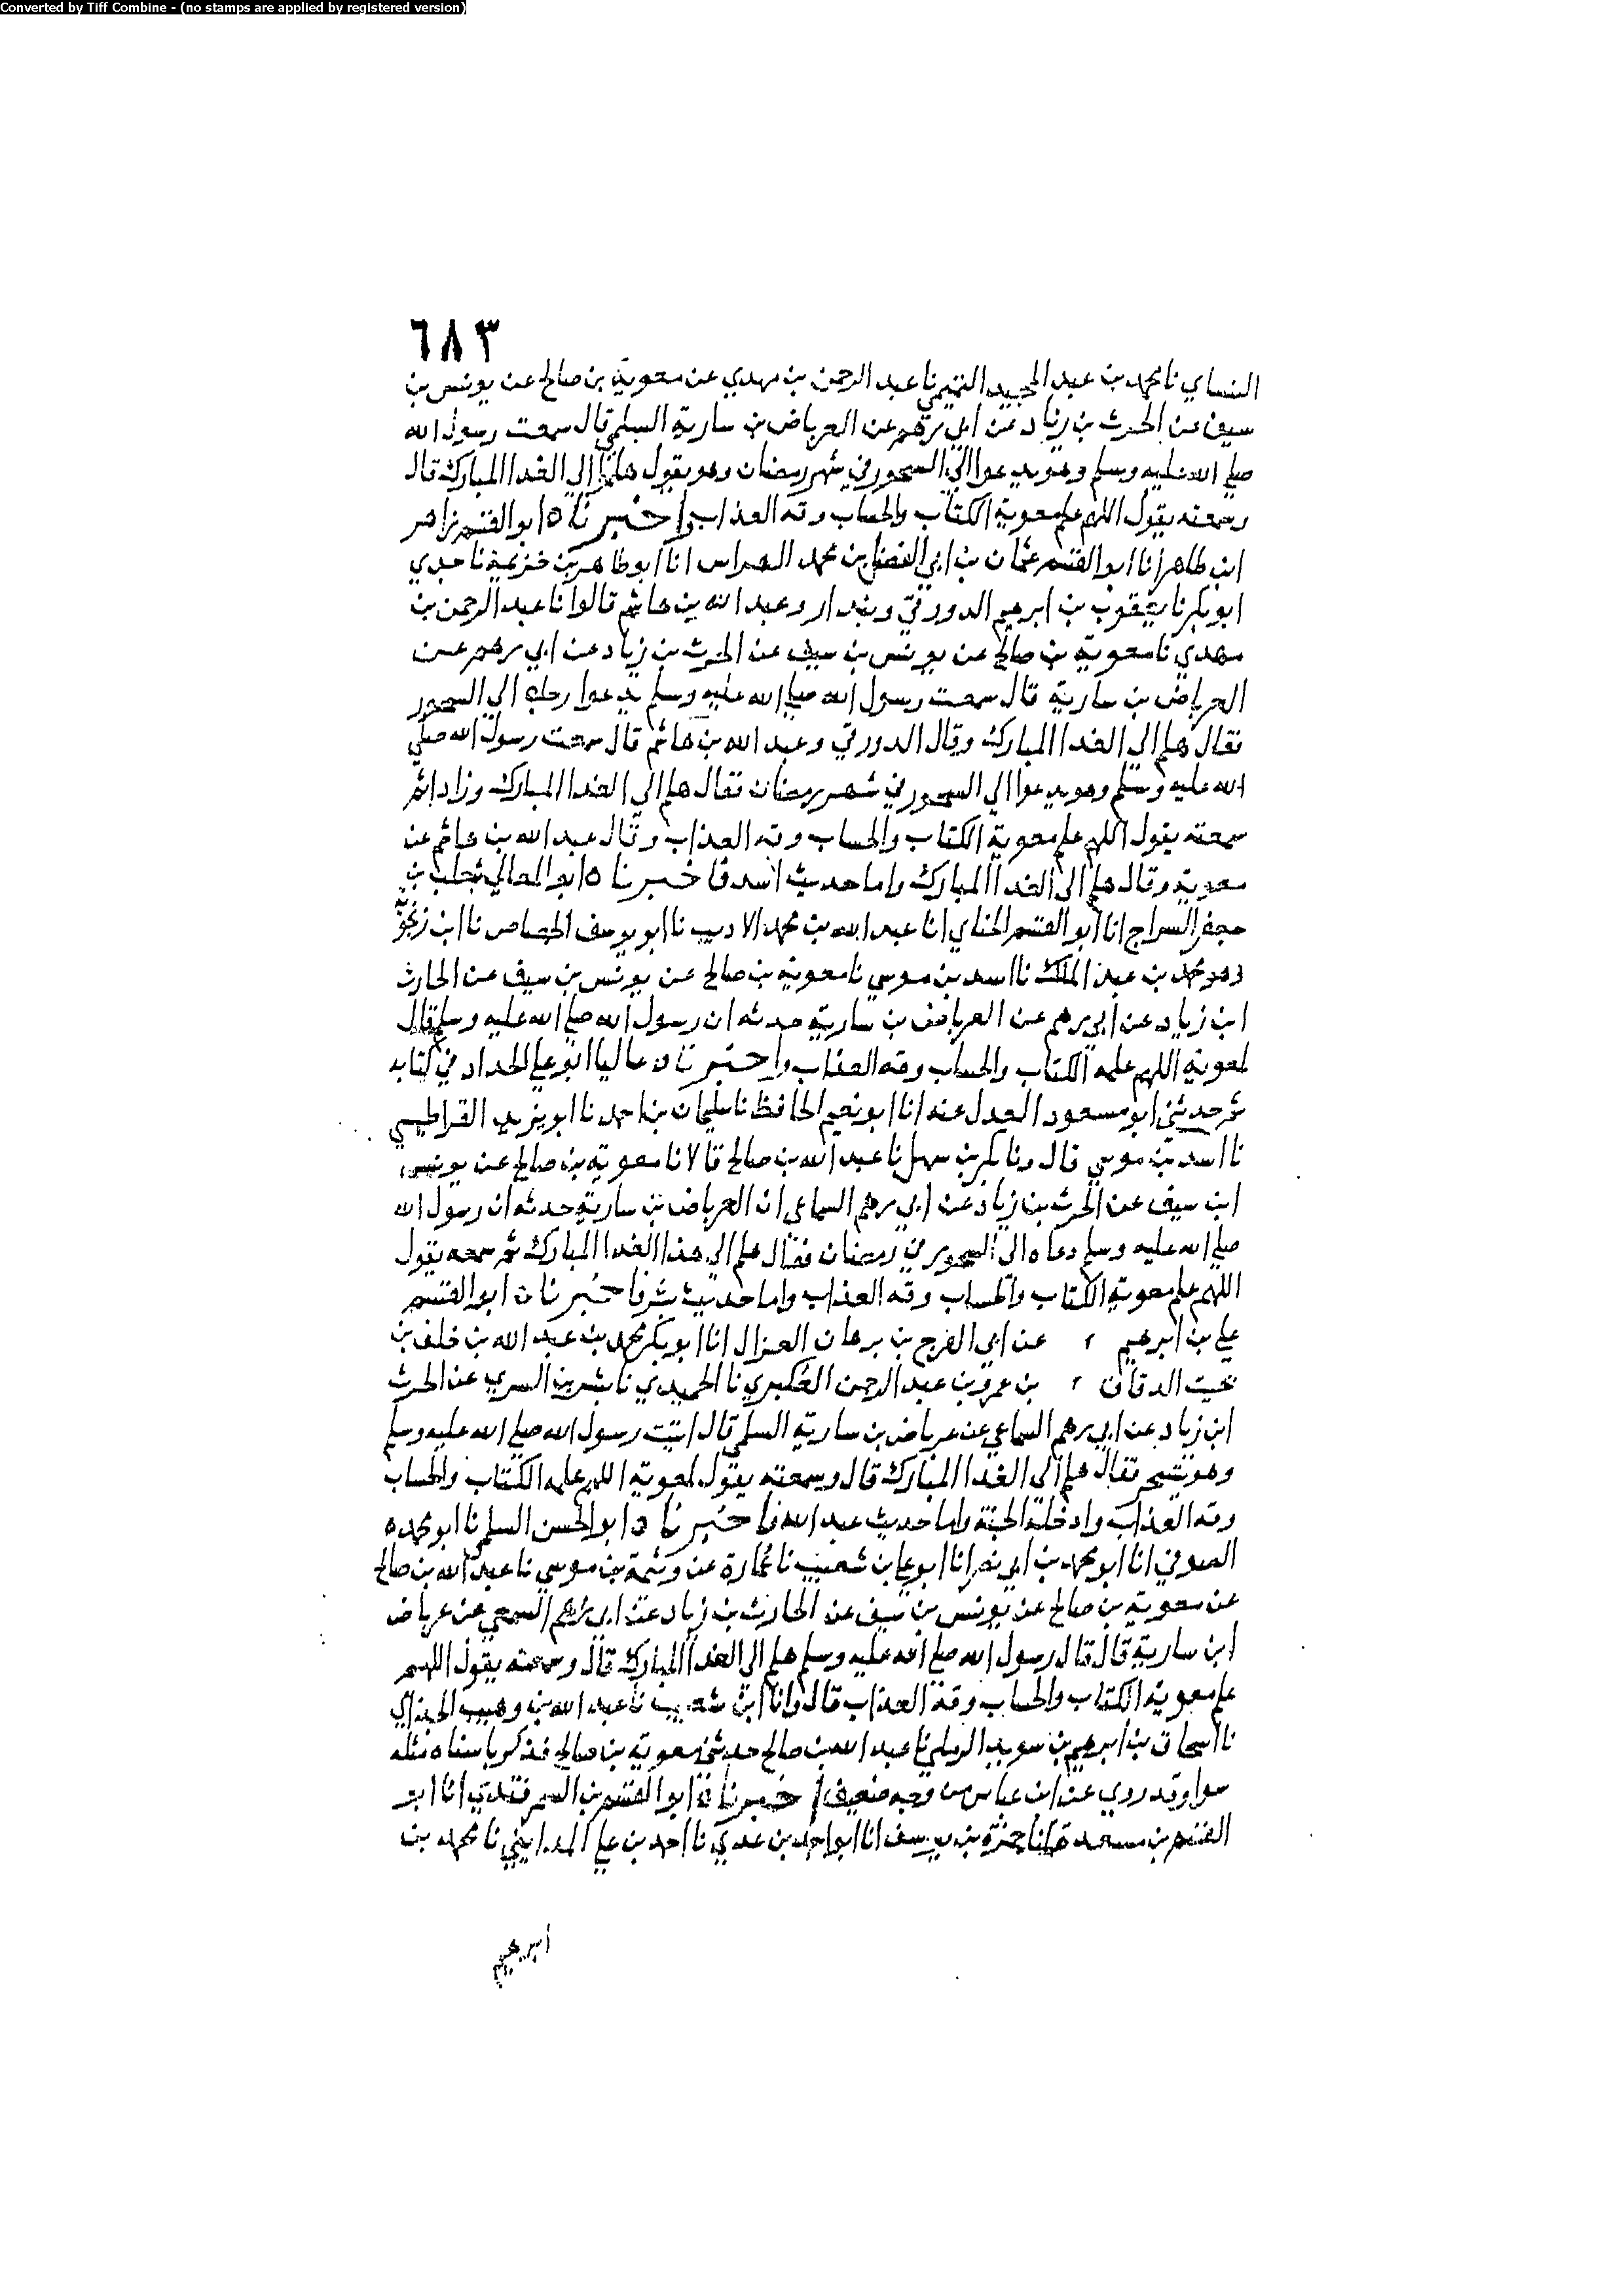 Converted by Tiff Combine - (no stamps are applied by registered version)
٦٨٣
النساي نا محمد بن عبد المجيد التميمي نا عبد الرحمن بن مهدي عن معوية بن صالح عن يونس بن
سيف عن الحرث بن زياد عن ابي رهم عن العرباض بن سارية السلمي قال سمعت رسول الله
صلي الله عليه وسلم وهو يدعوا الي السحور في شهر رمضان وهو يقول هلموا الي الغدا المبارك قال
وسمعته يقول اللهم علم معوية الكتاب والحساب وقه العذاب واخبرناه ابو القسم زاهر
ابن طاهر انا ابو القسم عثمان بن ابي الفضل بن محمد العراس انا ابو طاهر بن خزيمة نا جدي
ابو بكر نا يعقوب بن ابرهيم الدورقي وبندار وعبد الله بن هاشم قالوا نا عبد الرحمن بن
مهدي نا معوية بن صالح عن يونس بن سيف عن الحرث بن زياد عن ابي رهم عن
العرباض بن سارية قال سمعت رسول الله صلي الله عليه وسلم يدعوا رجلا الي السحور
فقال هلم الي الغدا المبارك وقال الدورقي وعبد الله بن هاشم قال سمعت رسول الله صلي
الله عليه وسلم وهو يدعوا الي السحور في شهر رمضان فقال هلم الي الغدا المبارك وزاد اثم
سمعته يقول اللهم علم معوية الكتاب والحساب وقه العذاب وقال عبد الله بن هاشم عن
معوية وقال هلم الي الغدا المبارك واما حديث اسد فاخبرناه ابو المعالي ثعلب بن
جعفر السراج انا ابو القسم الحناي انا عبد الله بن محمد الاديب نا ابو يوسف الجصاص نا ابن زنجويه
وهو محمد بن عبد الملك نا اسد بن موسي نا معوية بن صالح عن يونس بن سيف عن الحارث
ابن زياد عن ابي رهم عن العرباض بن سارية حدثه ان رسول الله صلي الله عليه وسلم قال
لمعوية اللهم علمه الكتاب والحساب وقه العذاب واخبرناه عاليا ابو علي الحداد في كتابه
ثم حدثني ابو مسعود العدل عنه انا ابو نعيم الحافظ نا سليمان بن احمد نا ابو يزيد القراطيسي
نا اسد بن موسي قال ونا بكر بن سهل نا عبد الله بن صالح قالا نا معوية بن صالح عن يونس
ابن سيف عن الحرث بن زياد عن ابي رهم السماعي ان العرباض بن سارية حدثه ان رسول الله
صلي الله عليه وسلم دعاه الي السحور في رمضان فقال هلم الي هذا الغدا المبارك ثم سمعه يقول
اللهم علم معوية الكتاب والحساب وقه العذاب واما حديث بشر فاخبرناه ابو القسم
علي بن ابرهيم عن ابي الفرج بن برهان الغزال انا ابو بكر محمد بن عبد الله بن خلف بن
بخيت الدقاق بن عمرو بن عبد الرحمن العكبري نا الحميدي نا بشر بن السري عن الحرث
ابن زياد عن ابي رهم السماعي عن عرباض بن سارية السلمي قال اتيت رسول الله صلي الله عليه وسلم
وهو يتسحر فقال هلم الي الغدا المبارك قال وسمعته يقول لمعوية اللهم علمه الكتاب والحساب
وقه العذاب وادخله الجنة واما حديث عبد الله فاخبرناه ابو الحسن السلمي نا ابو محمد
الصوفي انا ابو محمد بن ابي نصر انا ابو علي بن شعيب نا عمارة عن وثيمة بن موسي نا عبد الله بن صالح
عن معوية بن صالح عن يونس بن سيف عن الحارث بن زياد عن ابي رهم السمعي عن عرباض
ابن سارية قال قال رسول الله صلي الله عليه وسلم هلم الي الغدا المبارك قال وسمعته يقول اللهم
علم معوية الكتاب والحساب وقه العذاب قال وانا ابن شعيب نا عبد الله بن وهيب الجذامي
نا اسحاق بن ابرهيم بن سويد الرملي نا عبد الله بن صالح حدثني معوية بن صالح فذكر باسناده مثله
سوا وقد روي عن ابن عباس من وجه ضعيف اخبرناه ابو القسم بن السمرقندي انا ابو
القسم بن مسعدة انا حمزة بن يوسف انا ابو احمد بن عدي نا احمد بن علي المدايني نا محمد بن
ابرهيم